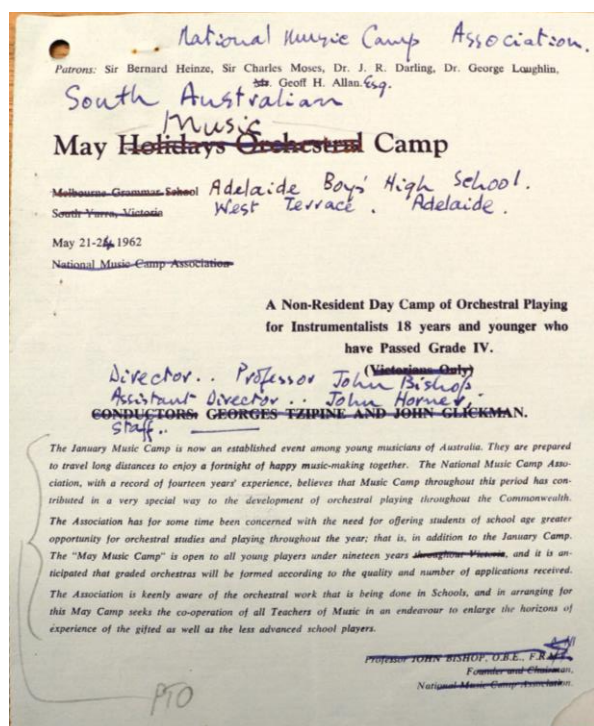 National Music Camp Association.
Patrons: Sir Bernard Heinze, Sir Charles Moses, Dr. J. R. Darling, Dr. George Loughlin,
Mr. Geoff H. Allan. Esq.
South Australian
Music
May Holidays Orchestral Camp
Melbourne Grammar School Adelaide Boys' High School.
South Yarra, Victoria West Terrace. Adelaide.
May 21-24, 1962
National Music Camp Association
A Non-Resident Day Camp of Orchestral Playing
for Instrumentalists 18 years and younger who
have Passed Grade IV.
(Victorians Only)
Director.. Professor John Bishop.
Assistant Director.. John Horner.
CONDUCTORS: GEORGES TZIPINE AND JOHN GLICKMAN.
Staff..
The January Music Camp is now an established event among young musicians of Australia. They are prepared
to travel long distances to enjoy a fortnight of happy music-making together. The National Music Camp Asso-
ciation, with a record of fourteen years' experience, believes that Music Camp throughout this period has con-
tributed in a very special way to the development of orchestral playing throughout the Commonwealth.
The Association has for some time been concerned with the need for offering students of school age greater
opportunity for orchestral studies and playing throughout the year; that is, in addition to the January Camp.
The "May Music Camp" is open to all young players under nineteen years throughout Victoria, and it is an-
ticipated that graded orchestras will be formed according to the quality and number of applications received.
The Association is keenly aware of the orchestral work that is being done in Schools, and in arranging for
this May Camp seeks the co-operation of all Teachers of Music in an endeavour to enlarge the horizons of
experience of the gifted as well as the less advanced school players.
Professor JOHN BISHOP, O.B.E.,
Founder and Chairman,
National Music Camp Association.
PTO